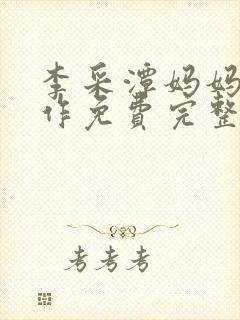 李采潭妈妈
作免費完整
考考考